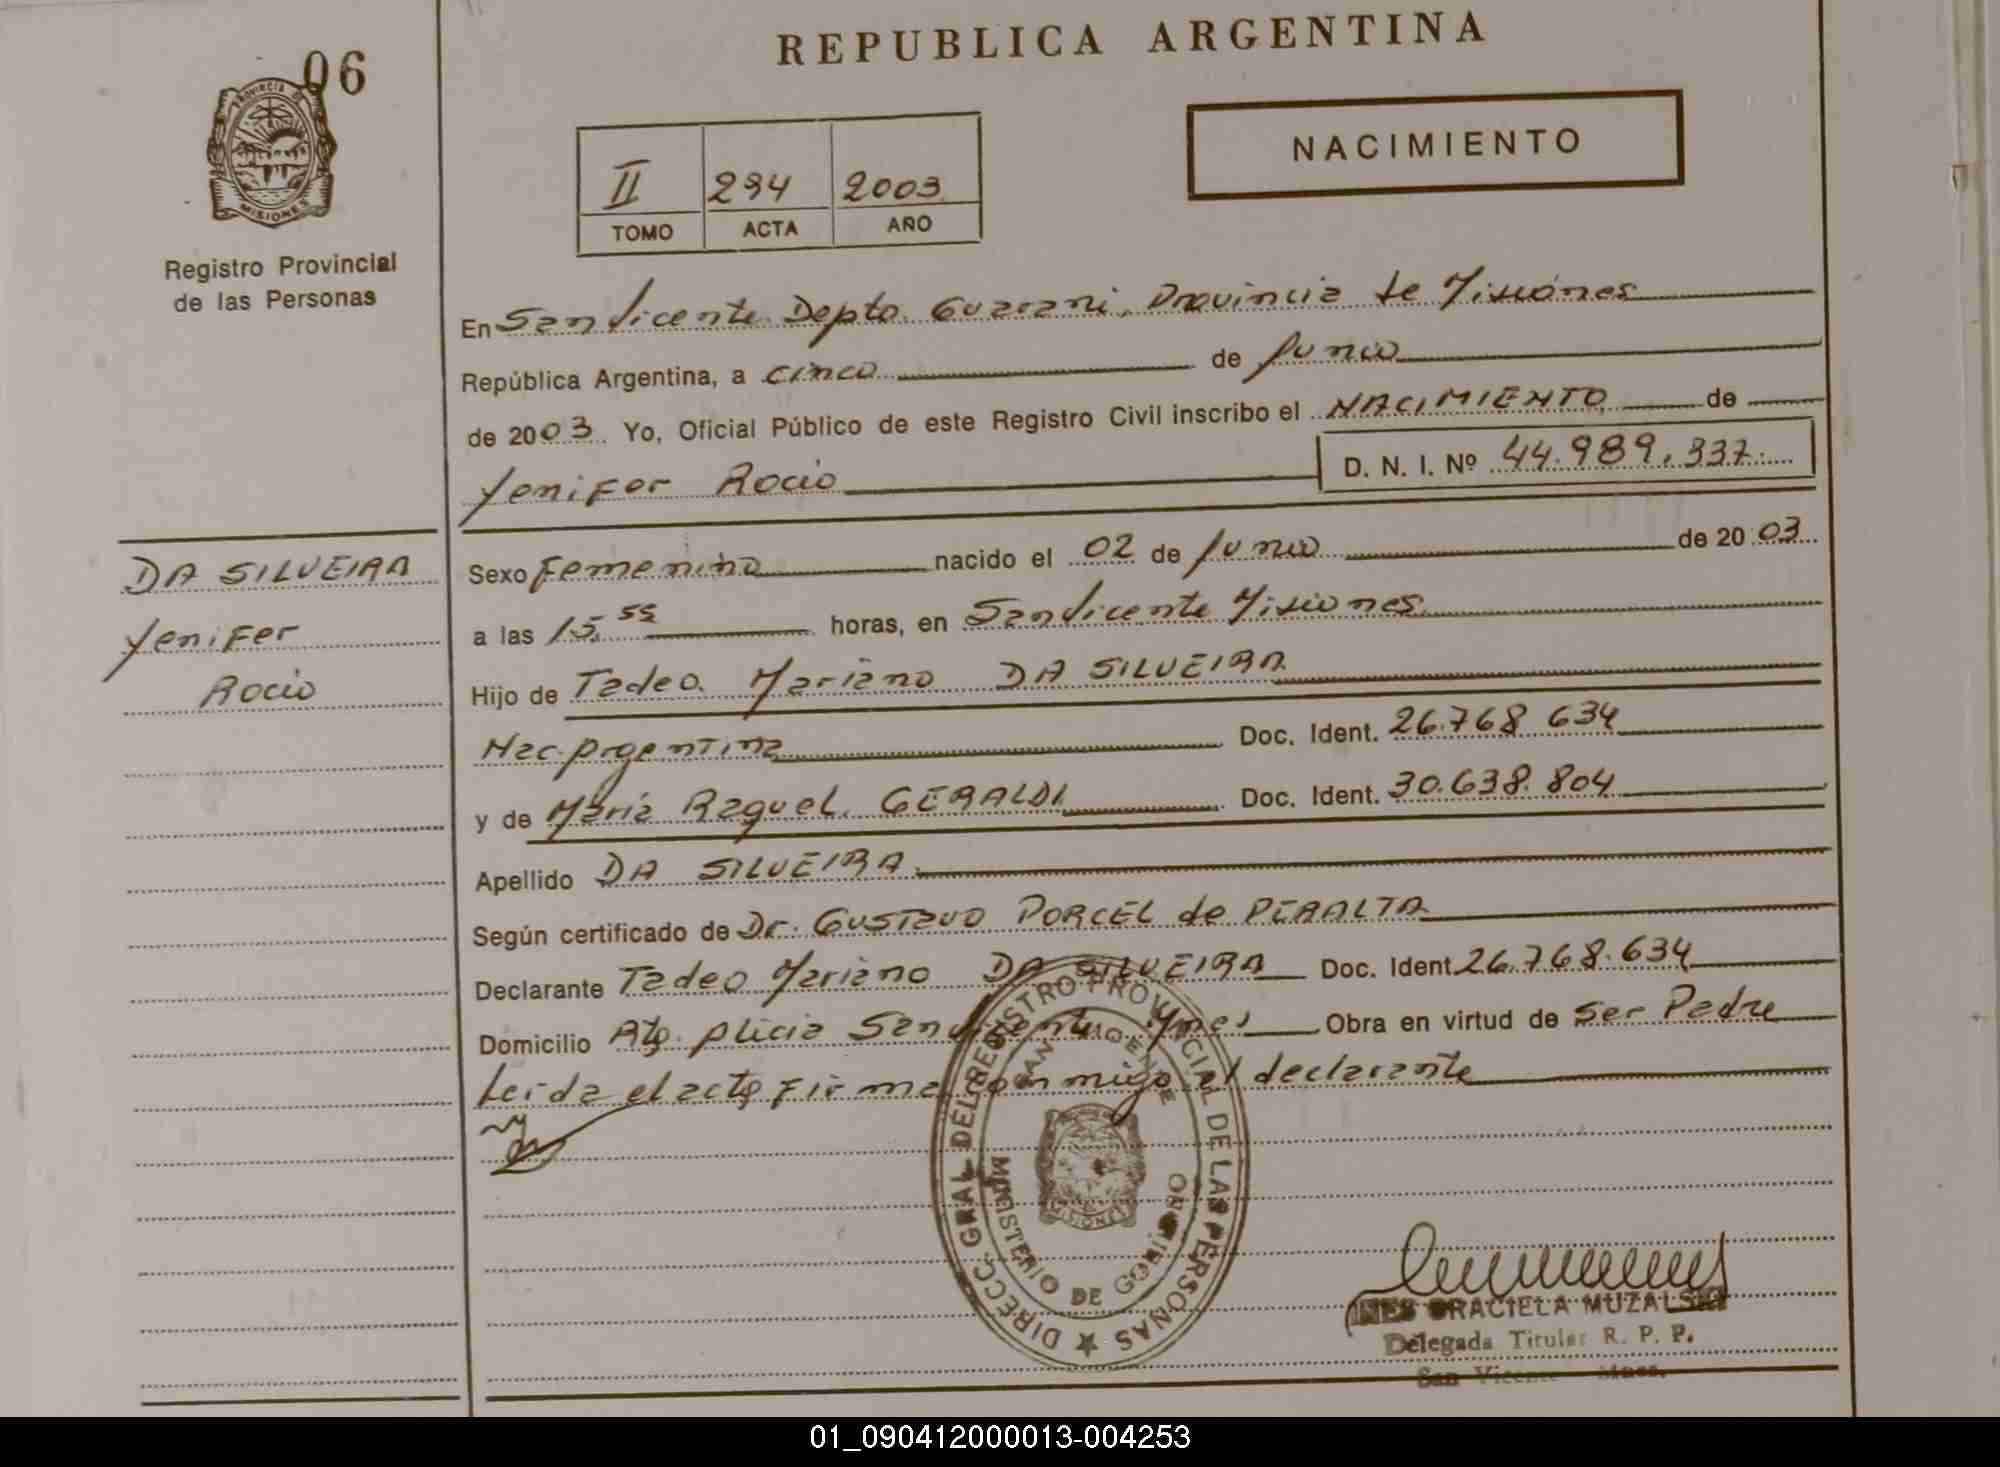 REPUBLICA ARGENTINA
06
PROVINCIA DE
MISIONES
Registro Provincial
de las Personas
II 294 2003
TOMO ACTA AÑO
NACIMIENTO
En San Vicente Depto. Guarani, Provincia de Misiones
República Argentina, a cinco de Junio
de 2003 Yo, Oficial Público de este Registro Civil inscribo el NACIMIENTO de
Yenifer Rocio D. N. I. Nº 44.989.337.
DA SILVEIRA
Yenifer
Rocio
Sexo Femenino nacido el 02 de Junio de 2003
a las 15,55 horas, en San Vicente Misiones
Hijo de Tadeo Mariano DA SILVEIRA
Nac. Argentina Doc. Ident. 26.768 634
y de Maria Raquel GERALDI Doc. Ident. 30.638.804
Apellido DA SILVEIRA
Según certificado de Dr. GUSTAVO PORCEL de PERALTA
Declarante Tadeo Mariano DA SILVEIRA Doc. Ident 26.768.634
Domicilio Alicia San Vicente Mnes Obra en virtud de ser Padre
Leida el acta firma conmigo el declarante
DIRECC. GRAL. DEL REGISTRO PROVINCIAL DE LAS PERSONAS
SAN VICENTE
MINISTERIO DE GOBIERNO
MISIONES
INES GRACIELA MUZALSKI
Delegada Titular R. P. P.
San Vicente Mnes.
01_090412000013-004253